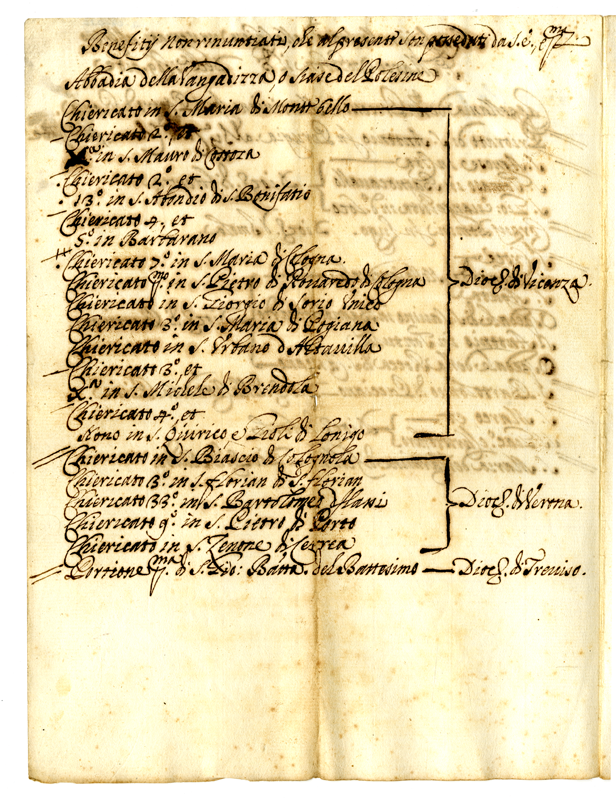 Benefitij non rinuntiati, che al presente son posseduti da S. E.
Abbadia della Vangadizza, o siase del Polesine
Chiericato in S. Maria di Montebello
Chiericato 2.º et
in S. Mauro di Costoza
Chiericato 2.º et
13.º in S. Abondio di S. Bonifatio
Chiericato 4. et
5.º in Barbarano
Chiericato 7.º in S. Maria di Cologna
Chiericato p.º in S. Pietro di Cologna
Chiericato in S. Giorgio di Sorio Unico
Chiericato 3.º in S. Maria di Pogiana
Chiericato in S. Urbano d'Altavilla
Chiericato 3.º et
X.º in S. Michele di Brendola
Chiericato 4.º et
Nono in S. Quirico e di Lonigo
Dioc. di Vicenza.
Chiericato in S. Biascio di Colognola
Chiericato 3.º in S. Florian di S. Florian
Chiericato 33.º in S. Bartolomeo d'Ilasi
Chiericato 9.º in S. Pietro di Porto
Chiericato in S. Zenone di Cerea
Dioc. di Verona.
Portione di S. Gio: Batta. del Battesimo Dioc. di Treviso.